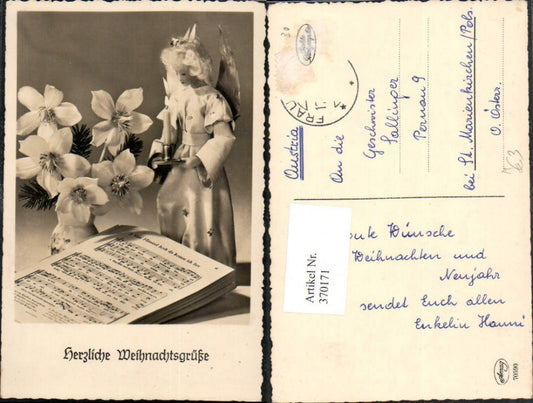 Vom Himmel hoch da komm ich her
Herzliche Weihnachtsgrüße
Austria
An die
Geschwister
Sallinger
Pernau 9
bei St. Marienkirchen/Pols.
O. Österr.
FRAC
30
63
Artikel Nr.
370171
Wünsche
Weihnachten und
Neujahr
sendet Euch allen
Enkelin Hanni
70599